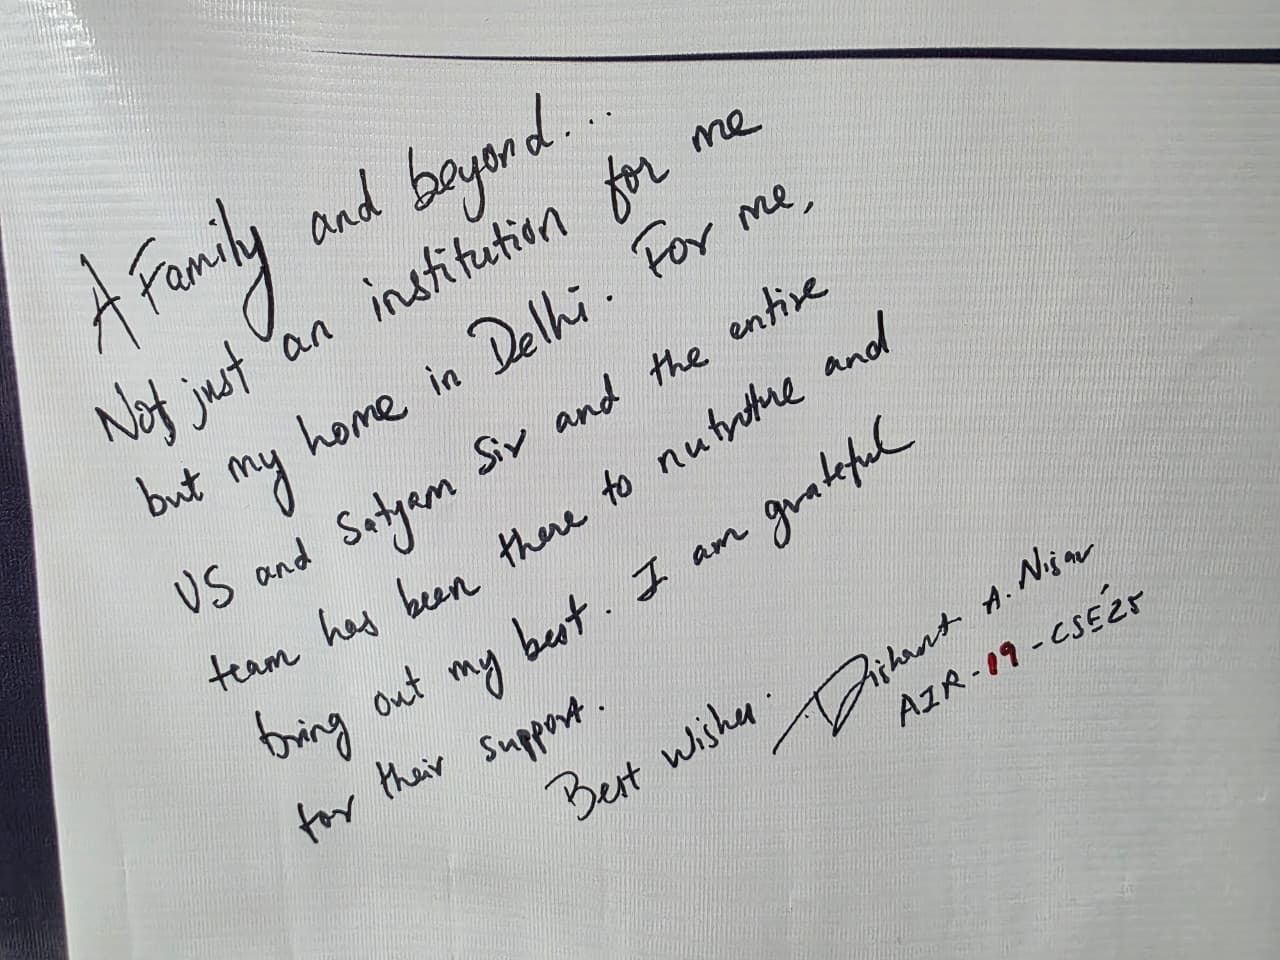 A Family and beyond...
Not just an institution for me
but my home in Delhi. For me,
VS and Satyam Sir and the entire
team has been there to nutruture and
bring out my best. I am grateful
for their support.
Best Wishes.
A. Nisar
AIR-19-CSE'25